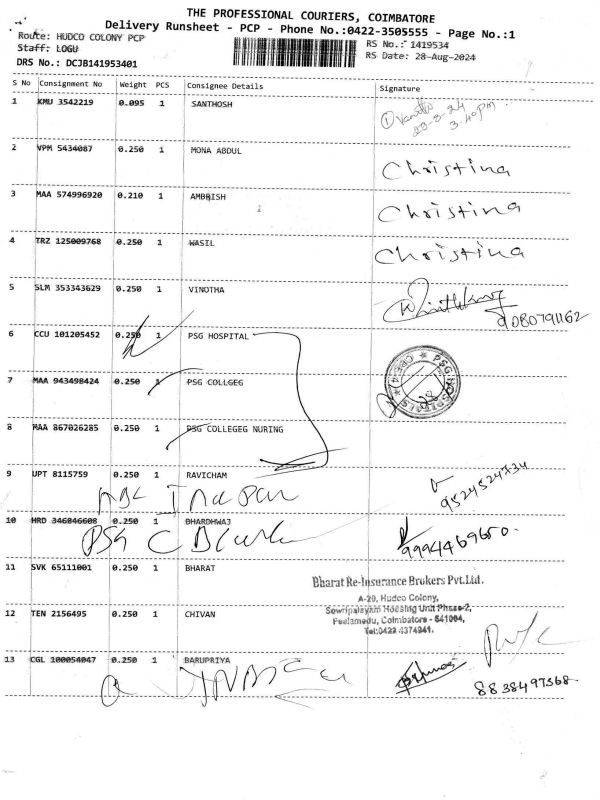 THE PROFESSIONAL COURIERS, COIMBATORE
Delivery Runsheet - PCP - Phone No.:0422-3505555 - Page No.:1
Route: HUDCO COLONY PCP
RS No.: 1419534
Staff: LOGU
RS Date: 28-Aug-2024
DRS No.: DCJB141953401
S No Consignment No Weight PCS Consignee Details Signature
1 KMU 3542219 0.095 1 SANTHOSH
3.40pm
2 VPM 5434087 0.250 1 MONA ABDUL
Christina
3 MAA 574996920 0.210 1 AMBRISH
Christina
4 TRZ 125009768 0.250 1 WASIL
Christina
5 SLM 353343629 0.250 1 VINOTHA
9080791162
6 CCU 101205452 0.250 1 PSG HOSPITAL
PSG HOSPITALS
7 MAA 943498424 0.250 1 PSG COLLGEG
8 MAA 867026285 0.250 1 PSG COLLEGEG NURING
9 UPT 8115759 0.250 1 RAVICHAM
9524524734
10 HRD 346846608 0.250 1 BHARDHWAJ
PSG
9994469650
11 SVK 65111001 0.250 1 BHARAT
Bharat Re-Insurance Brokers Pvt.Ltd.
A-20, Hudco Colony,
Sowripalayam Housing Unit Phase-2,
Peelamedu, Coimbatore - 641004,
Tel:0422 4374941.
12 TEN 2156495 1 0.250 CHIVAN
13 CGL 100054047 0.250 1 BARUPRIYA
8838497368